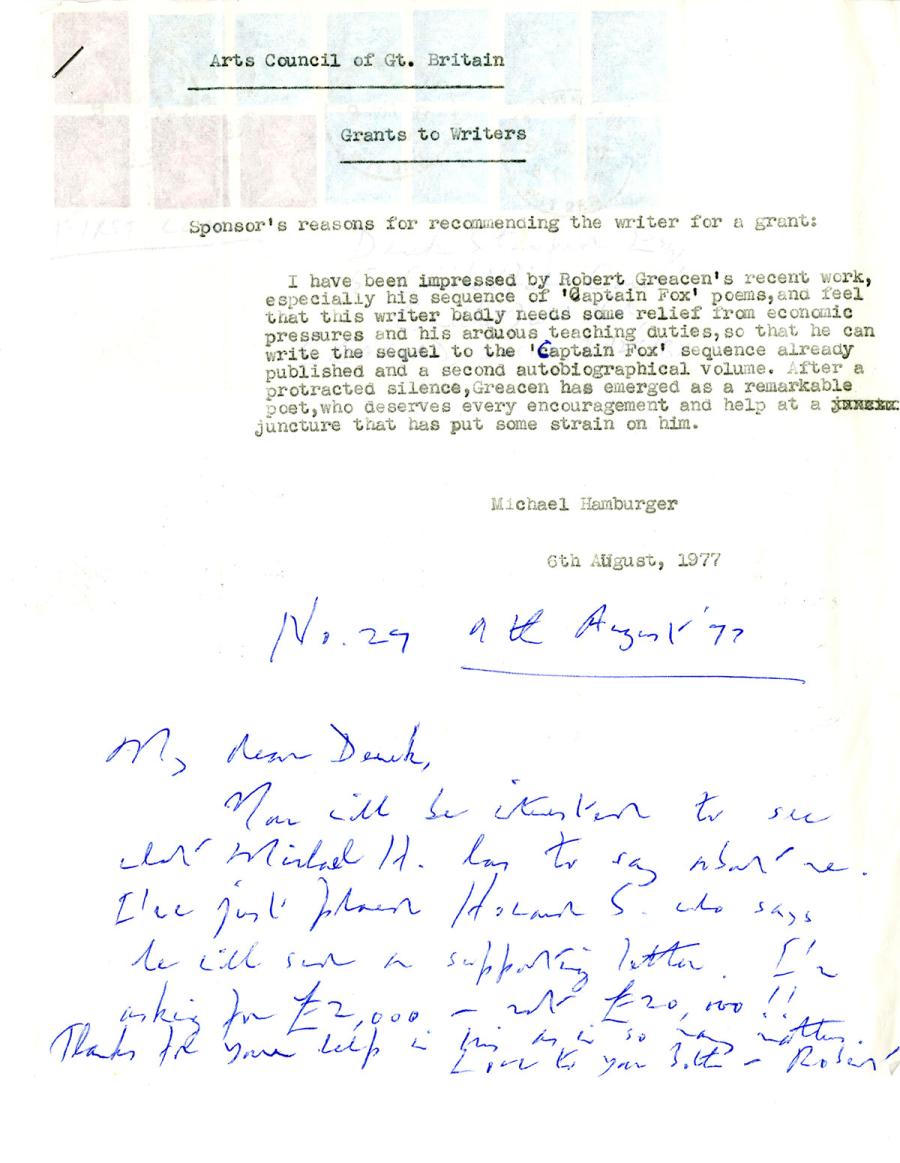 Arts Council of Gt. Britain
Grants to Writers
Sponsor's reasons for recommending the writer for a grant:
I have been impressed by Robert Greacen's recent work,
especially his sequence of 'Captain Fox' poems,and feel
that this writer badly needs some relief from economic
pressures and his arduous teaching duties,so that he can
write the sequel to the 'Captain Fox' sequence already
published and a second autobiographical volume. After a
protracted silence,Greacen has emerged as a remarkable
poet,who deserves every encouragement and help at a
juncture that has put some strain on him.
Michael Hamburger
6th August, 1977
No. 29 9th August '77
My dear Derek,
You will be interested to see
what Michael H. has to say about me.
I've just phoned Howard S. who says
he will send a supporting letter. I'm
asking for £2,000 – not £20,000!!
Thanks for your help in this as in so many matters.
Love to you both – Robert